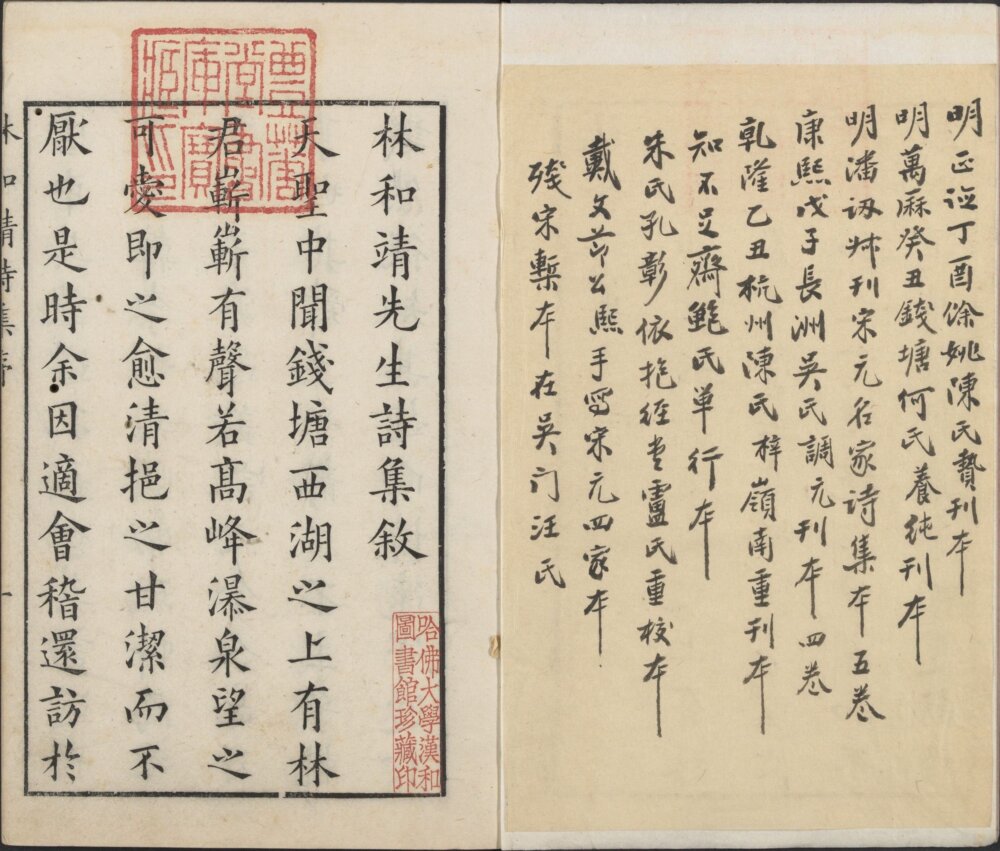 明正德丁酉餘姚陳氏贄刊本
明萬厤癸丑錢塘何氏養純刊本
明潘訒叔刊宋元名家诗集本五卷
康熙戊子長洲吳氏調元刊本四卷
乾隆乙丑杭州陳氏梓嶺南重刊本
知不足齋鮑氏单行本
朱氏孔彰依抱經堂盧氏重校本
戴文節公熙手寫宋元四家本
殘宋槧本在吴门汪氏
林和靖先生詩集敘
天聖中聞錢塘西湖之上有林
君嶄嶄有聲若高峰瀑泉望之
可愛即之愈清挹之甘潔而不
厭也是時余因適會稽還訪於
林和靖詩集序
一
哈佛大學漢和
圖書館珍藏印